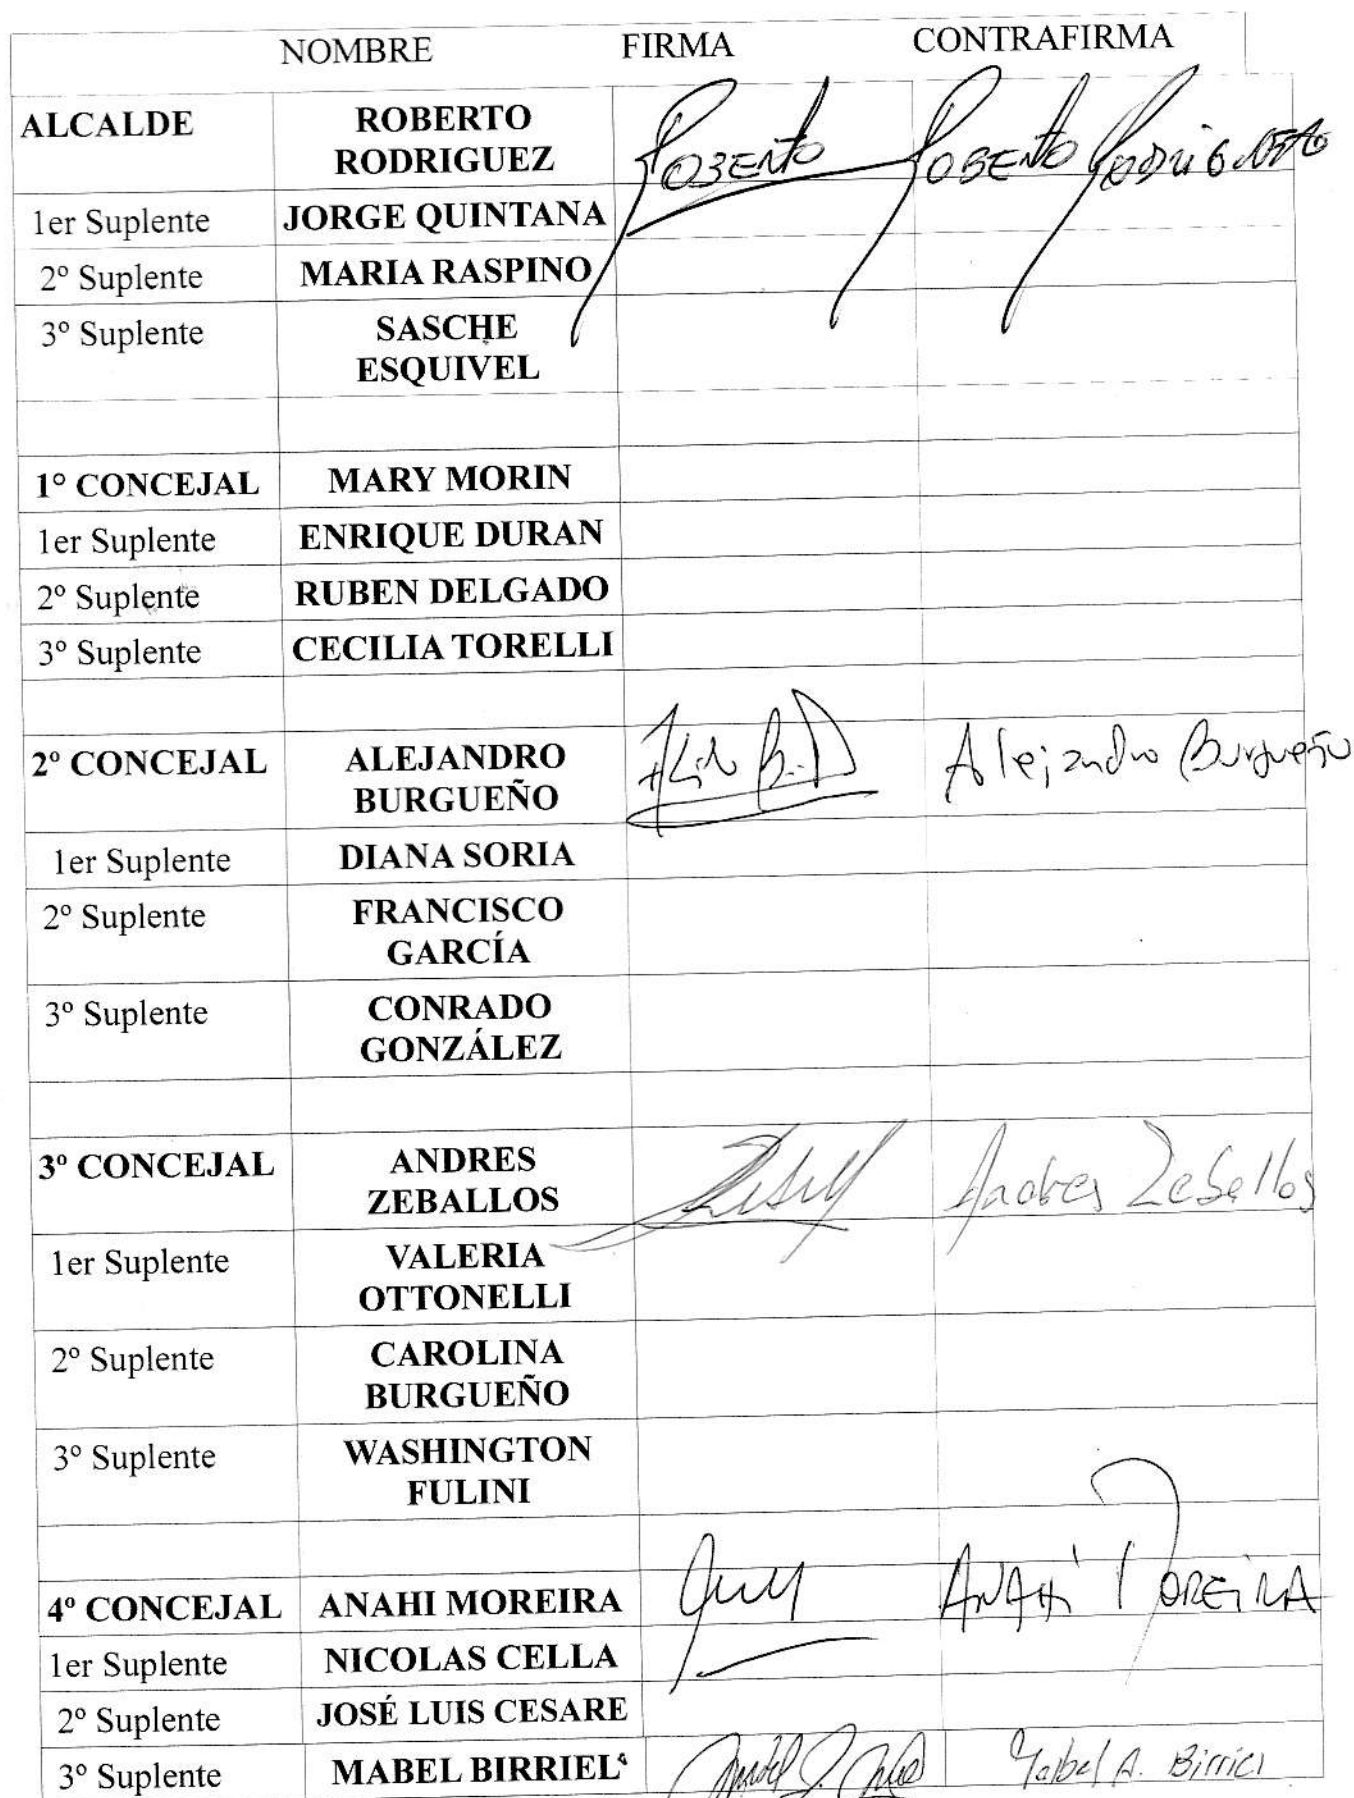 NOMBRE FIRMA CONTRAFIRMA
ALCALDE ROBERTO RODRIGUEZ Roberto Roberto Rodriguez
1er Suplente JORGE QUINTANA
2º Suplente MARIA RASPINO
3º Suplente SASCHE ESQUIVEL
1° CONCEJAL MARY MORIN
1er Suplente ENRIQUE DURAN
2º Suplente RUBEN DELGADO
3º Suplente CECILIA TORELLI
2º CONCEJAL ALEJANDRO BURGUEÑO Alejandro Burgueño
1er Suplente DIANA SORIA
2º Suplente FRANCISCO GARCÍA
3º Suplente CONRADO GONZÁLEZ
3º CONCEJAL ANDRES ZEBALLOS Andres Zeballos
1er Suplente VALERIA OTTONELLI
2º Suplente CAROLINA BURGUEÑO
3º Suplente WASHINGTON FULINI
4º CONCEJAL ANAHI MOREIRA ANAHÍ MOREIRA
1er Suplente NICOLAS CELLA
2º Suplente JOSÉ LUIS CESARE
3º Suplente MABEL BIRRIEL Mabel A. Birriel